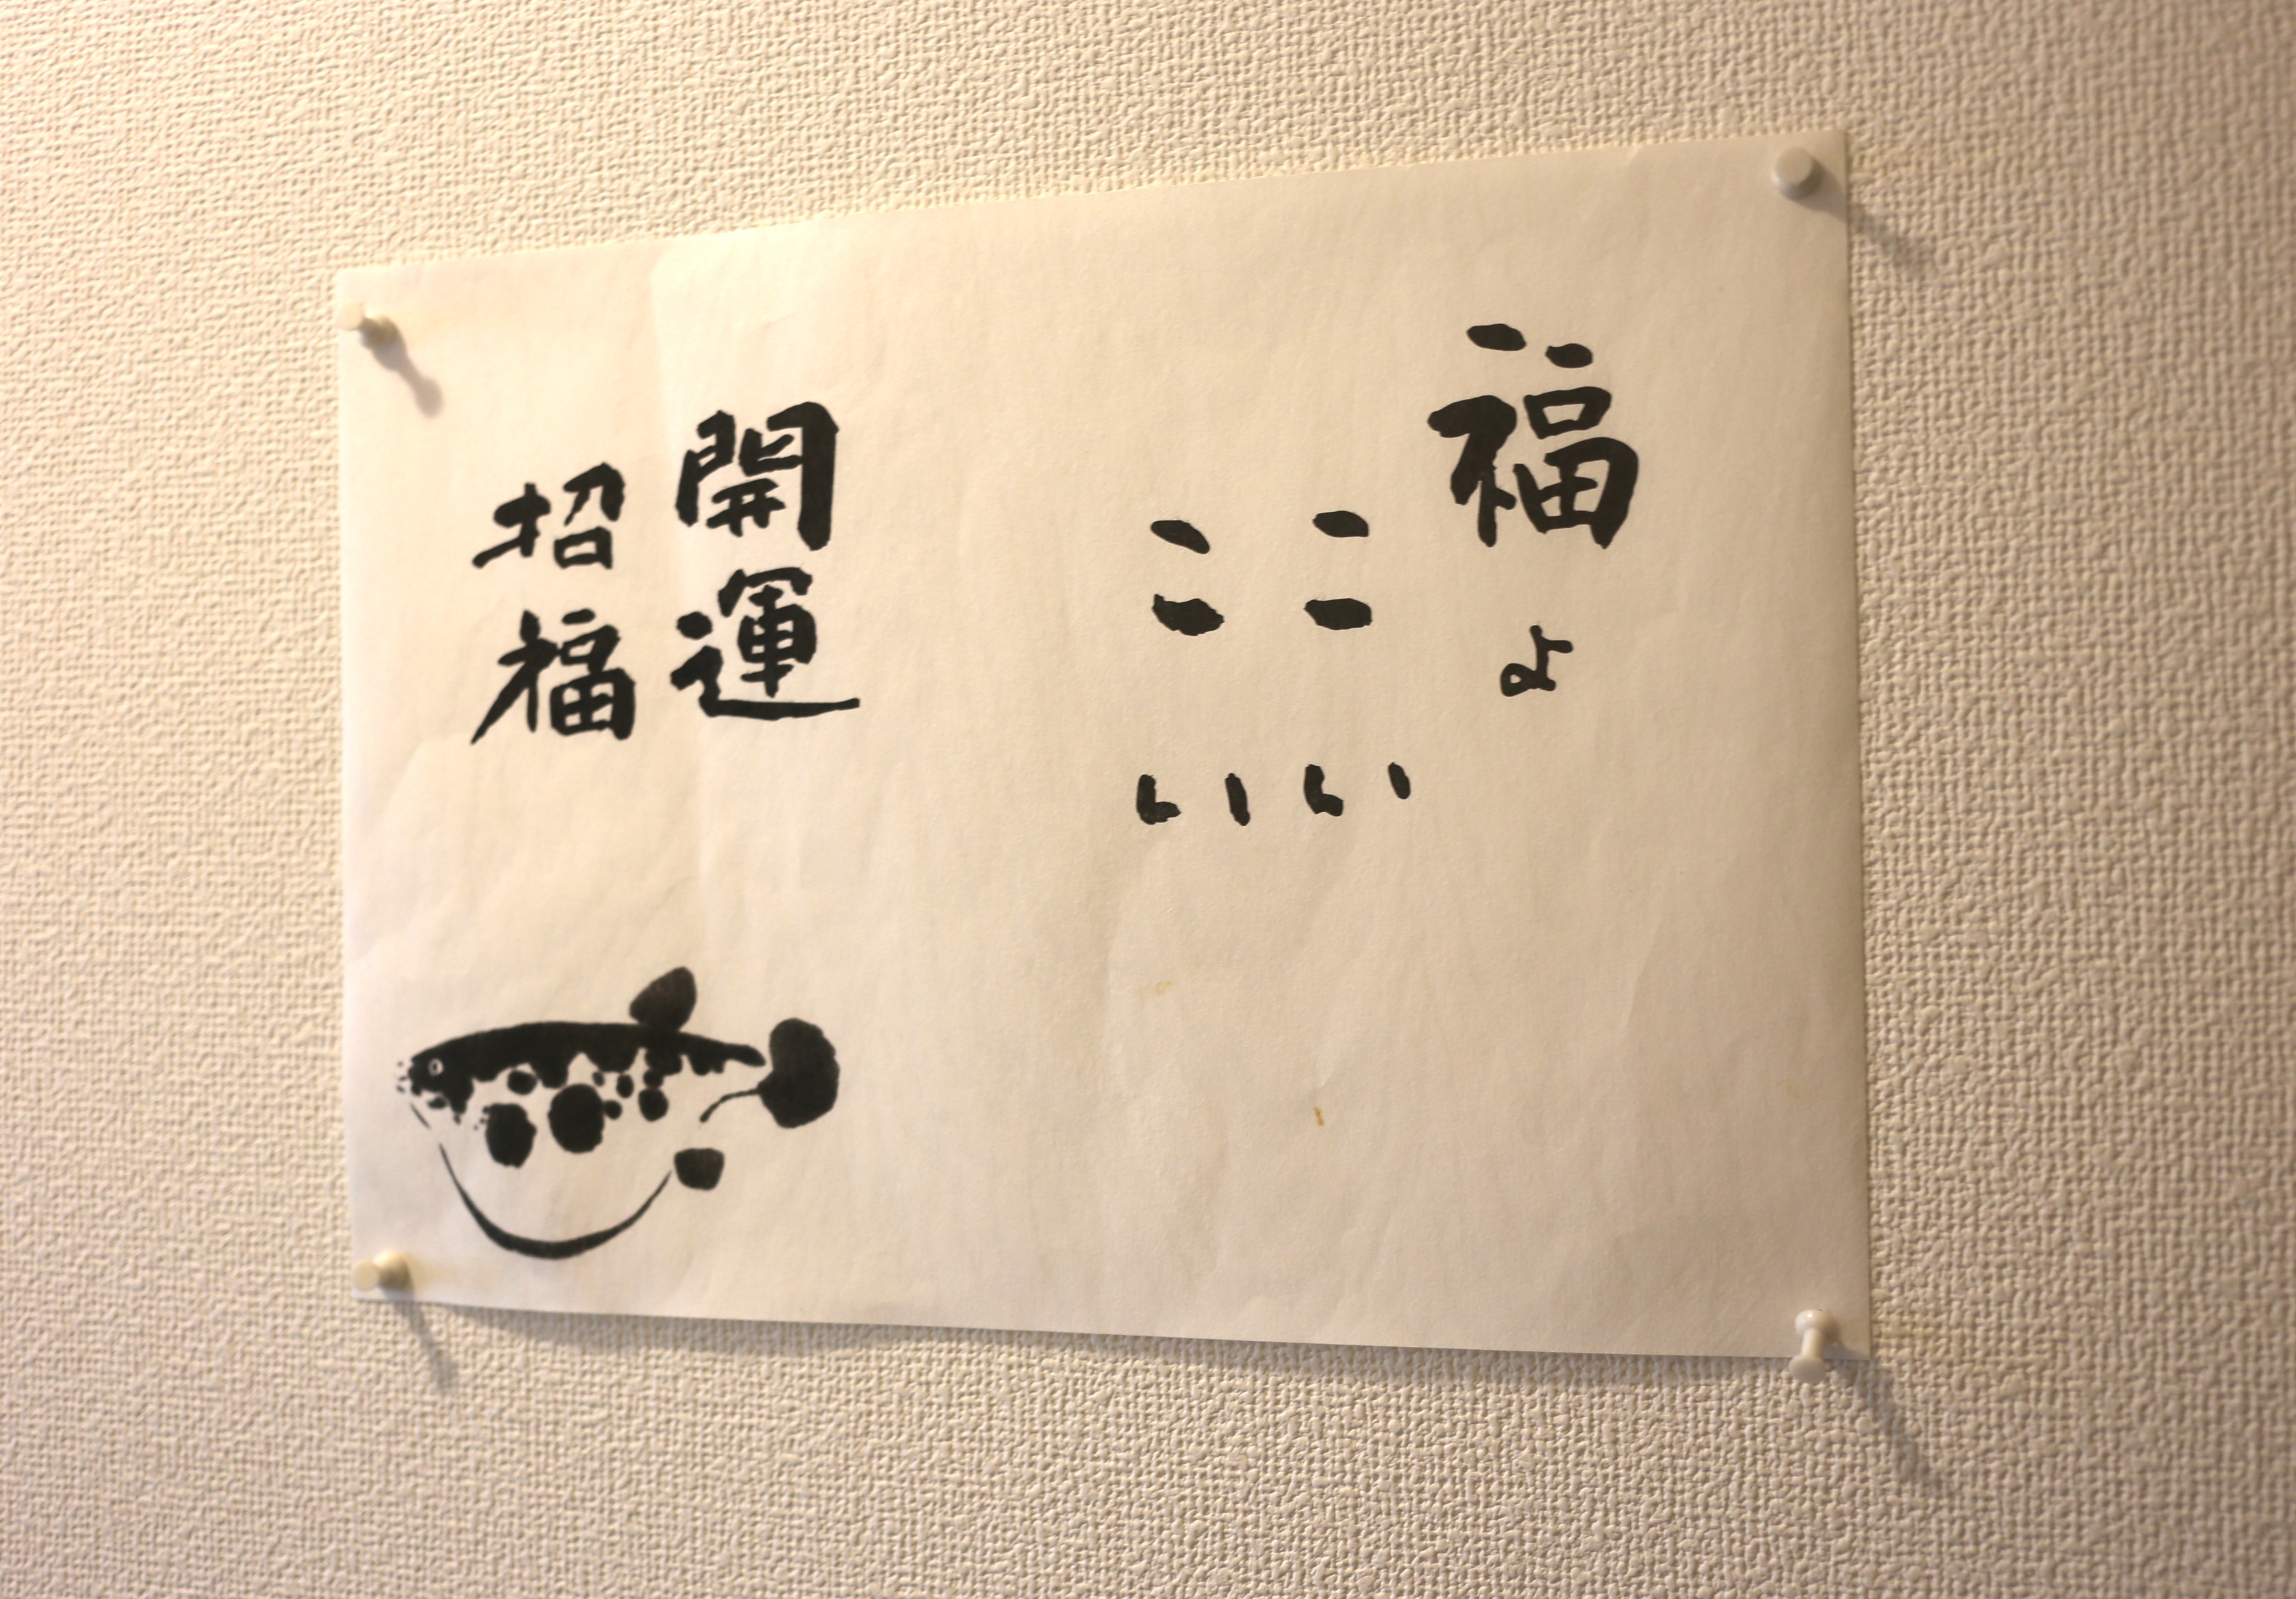 福よ
こい
こい
開運
招福